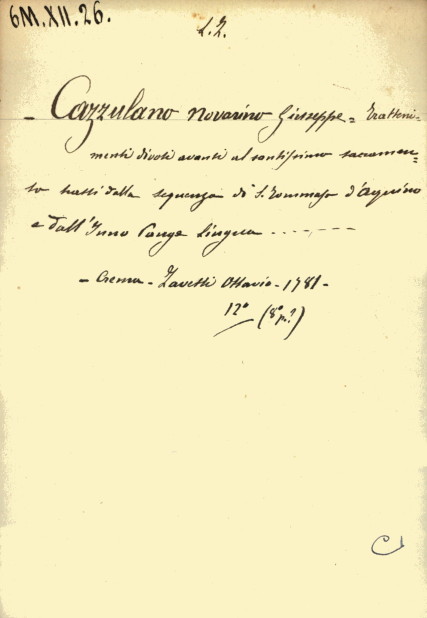 6M.XII.26.
L.Z.
- Cazzulano Novarino Giuseppe = Tratteni-
menti divoti avanti al santissimo sacramen-
to tratti dalla sequenza di S. Tommaso d'Aquino
e dall'Inno Pange Lingua - - - - - -
- Crema - Zavetti Ottavio - 1781 -
12° (8° p.?)